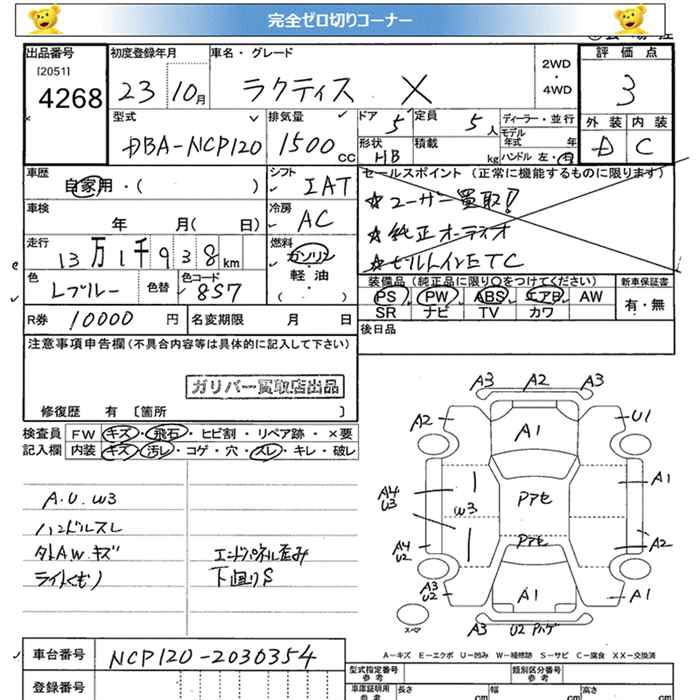 完全ゼロ切りコーナー
出品番号 初度登録年月 車名・グレード 評価点
[2051]
4268 23 10月 ラクティス X 2WD・4WD 3
型式 排気量 ドア 5 定員 5人 ディーラー・並行 外装 内装
DBA-NCP120 1500cc 形状 HB 積載 kg モデル年式 年 ハンドル 左・右 D C
車歴 自家用・( ) シフト IAT セールスポイント (正常に機能するものに限ります)
☆ユーザー買取!
車検 年 月( 日) 冷房 AC
☆純正オーディオ
走行 13万1千938km 燃料 ガソリン・軽・油・( )
☆ビルトインETC
色 Lブルー 色替 色コード 8S7 装備品(純正品に限り○をつけてください) 新車保証書
PS PW ABS エアB AW 有・無
R券 10000円 名変期限 月 日 SR ナビ TV カワ
後日品
注意事項申告欄(不具合内容等は具体的に記入して下さい)
ガリバー買取店出品
修復歴 有〔箇所 〕
検査員 FW キズ・飛石・ヒビ割・リペア跡・×要
記入欄 内装 キズ・汚レ・コゲ・穴・スレ・キレ・破レ
A.U.W3
ハンドルスレ
タトAWキズ エンドパネル歪み
ライトくもり 下回りS
A3 A2 A3
A2 A1 U1
A4 U3 W3 Pアセ A1
A4 U2 Pアセ A2
A3 U2 A1 A1
スペア A3 U2
A-キズ E-エクボ U-凹み W-補修跡 S-サビ C-腐食 XX-交換済
車台番号 NCP120-2030354
型式指定番号 参考 類別区分番号 参考
登録番号 車庫証明用 参考 長さ cm 幅 cm 高さ cm